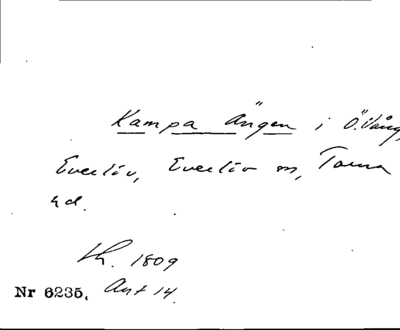 Kampa Ängen i Ö. Vång,
Everlöv, Everlöv sn, Torna
hd.
Lh. 1809
Nr 6235. Akt 14.